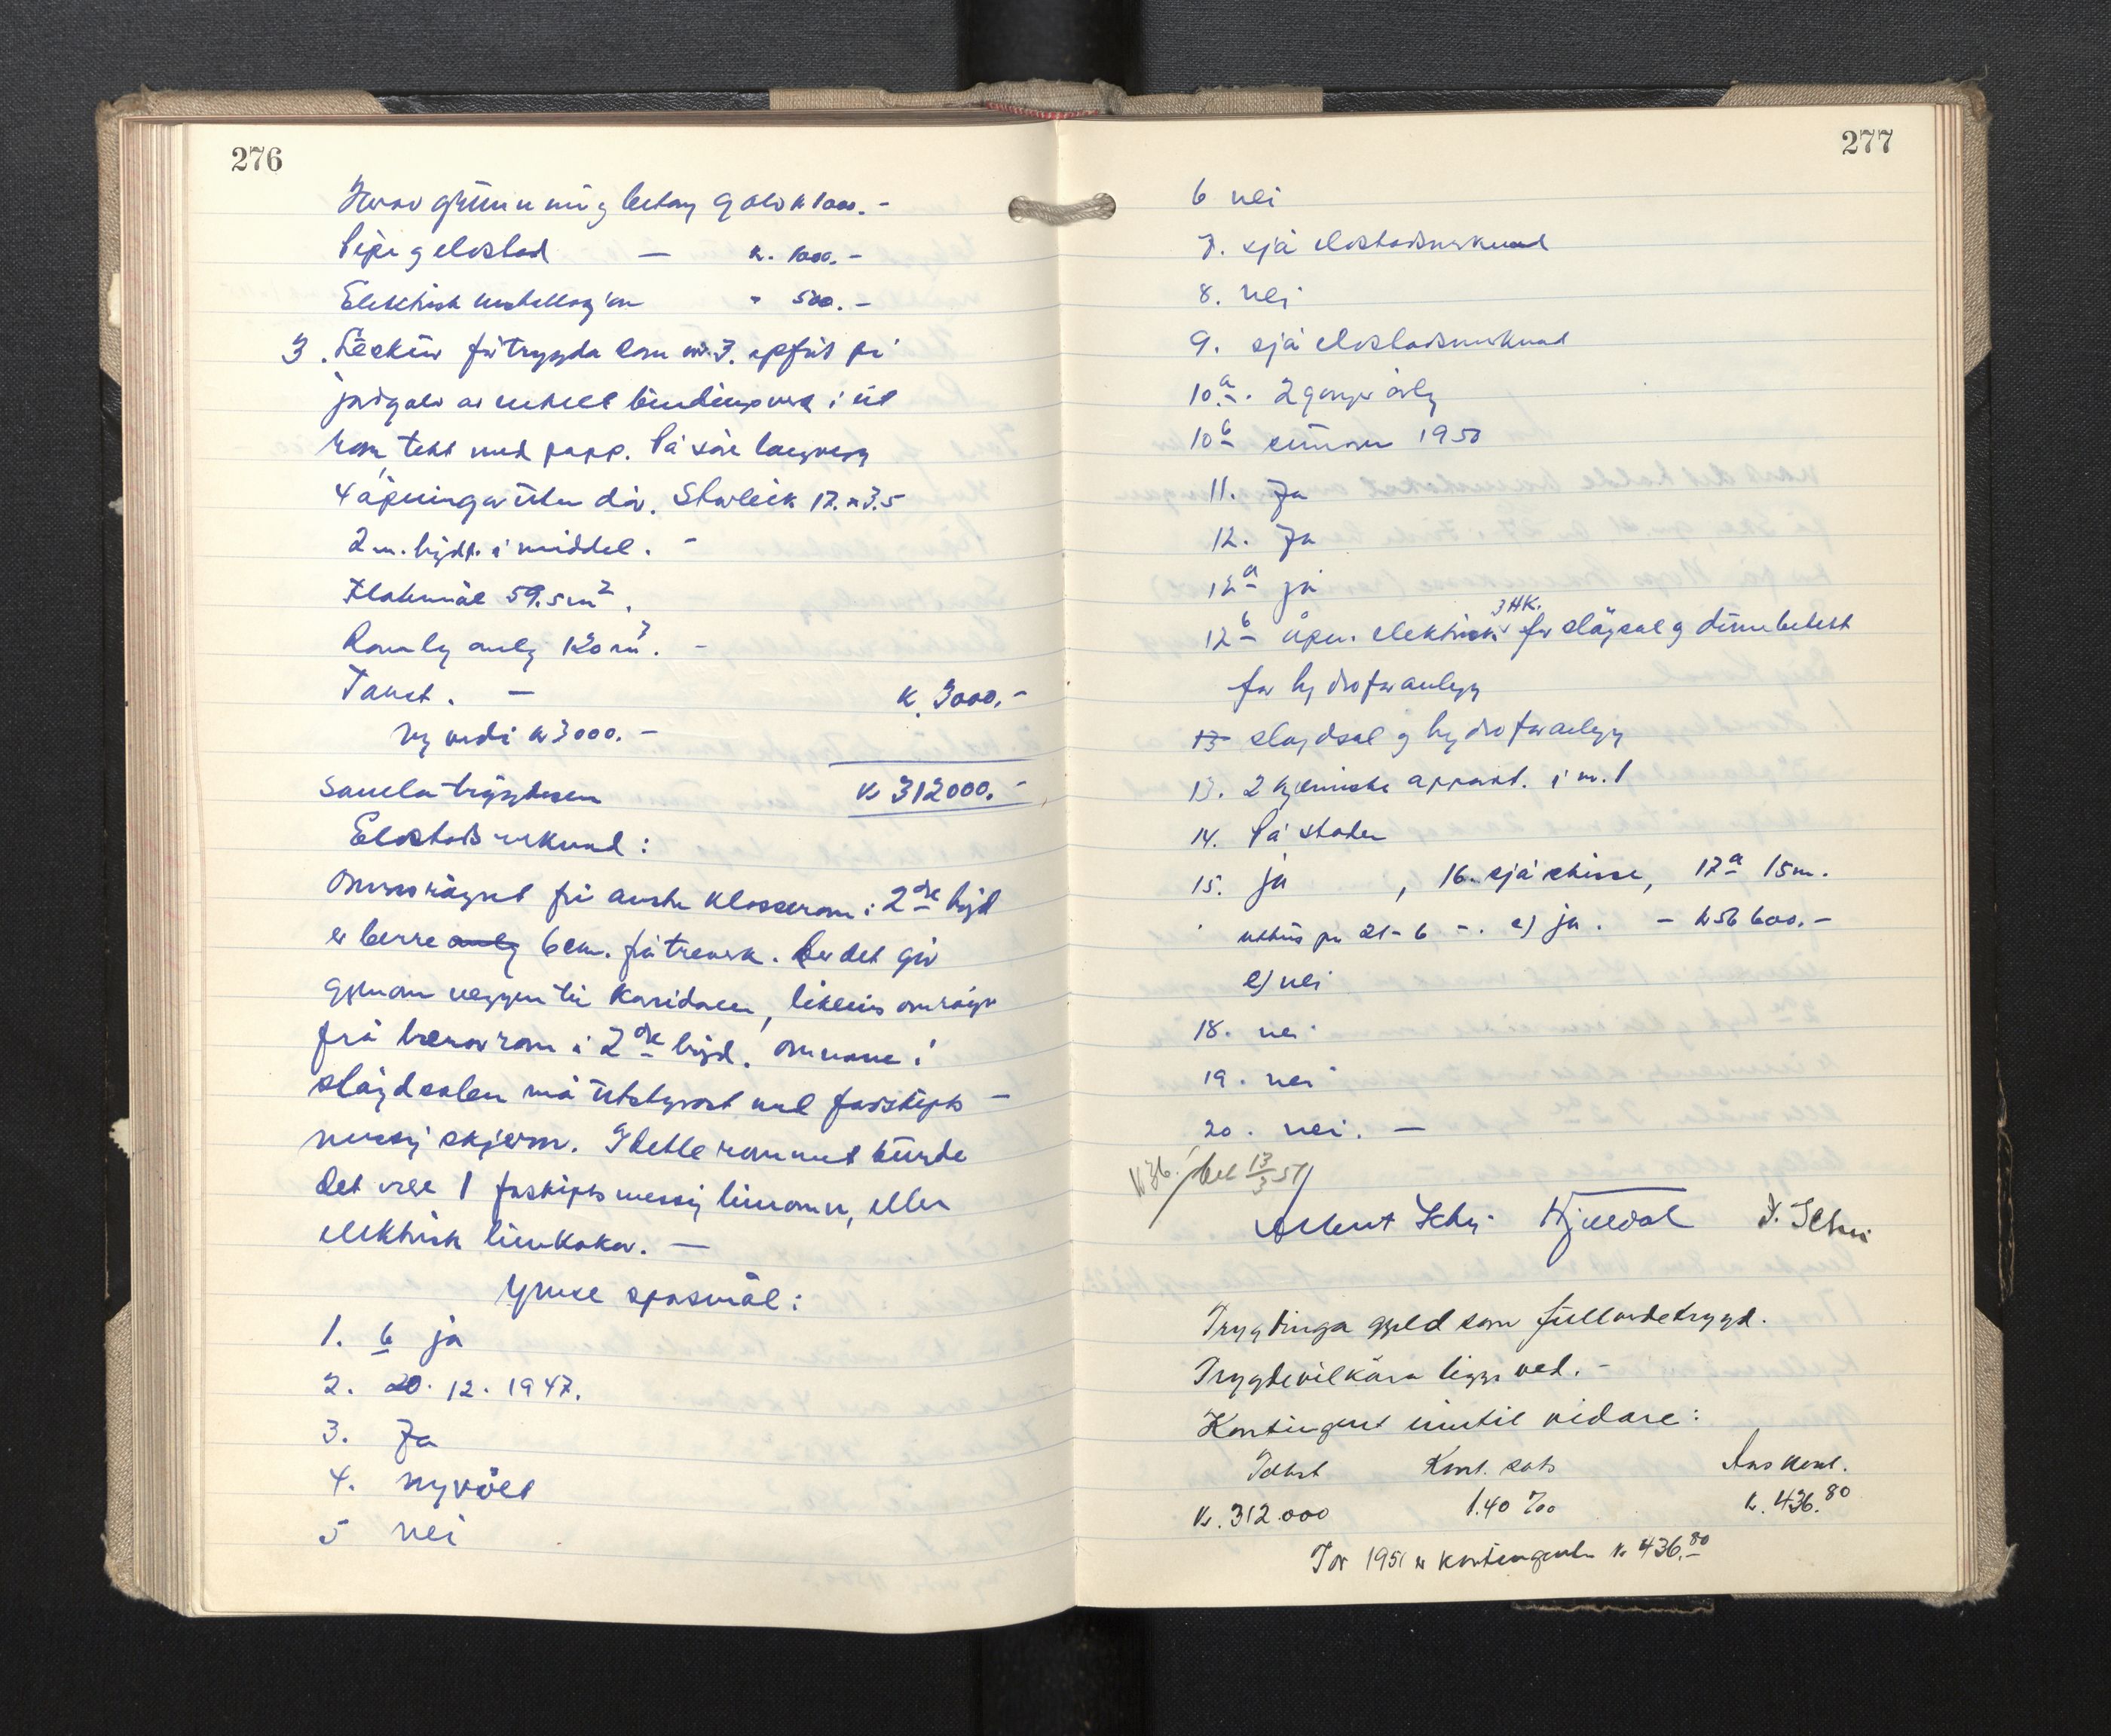 276
Herav grunnmur og betong golv k 1000.-
Pipe og eldstad — k. 1000.-
Elektrisk installasjon " 500.-
3. fåtrygda som nr. 3. oppført på
jordgolv av enkelt bindingsverk i eit
rom, tekt med papp. På søre langvegg
4 åpningar utan dør. Storleik 17. x 3.5
2 m. høgde i middel. -
Flatemål 59.5 m².
Romleg omlag 120 m³. -
Takst. — k. 3000.-
ny verdi kr 3000. -
Samla trygdesum kr 312000.-
Eldstadsmerknad:
Omnsrøyret frå austre klasserom i 2dre høgd
er berre omlag 6 cm. frå treverk. der det går
gjennom veggen til koridoren, likeeins omnsrøyr
frå lærarrom i 2dre høgd. Omnane i
sløydsalen må utstyrast med forskrifts-
messig skjerm. I dette rommet burde
det vere 1 forskriftsmessig limomn, eller
elektrisk limkokar. —
Ymse spørsmål:
1. b ja
2. 20. 12. 1947.
3. Ja
4. nyvølt
5 nei
277
6 nei
7. sjå eldstadsmerknad
8. nei
9. sjå eldstadsmerknad
10.a. 2 gonger årleg
10 b sumaren 1950
11. Ja
12. Ja
12 a ja
12 b åpen. elektrisk 3 HK. for sløysal og
for hydroforanlegg
13 sløydsal og hydroforanlegg
13. 2 kjemiske apparat. i nr. 1
14. På staden
15. ja , 16. sjå skisse, 17 a 15 m.
uthus pr 21- 6 -. c) ja. - k 56 600.-
e) nei
18. nei
19. nei
20. nei. —
k 36. bet 13/3 51
Albert Kjelldal
Trygdinga gjeld som fullverdetrygd.
Trygdevilkåra ligg ved. -
Kontingent inntil vidare:
Takst Kont. sats Års kont.
Kr. 312.000 1.40 ‰ k. 436.80
For 1951 er kontingenten kr 436.80